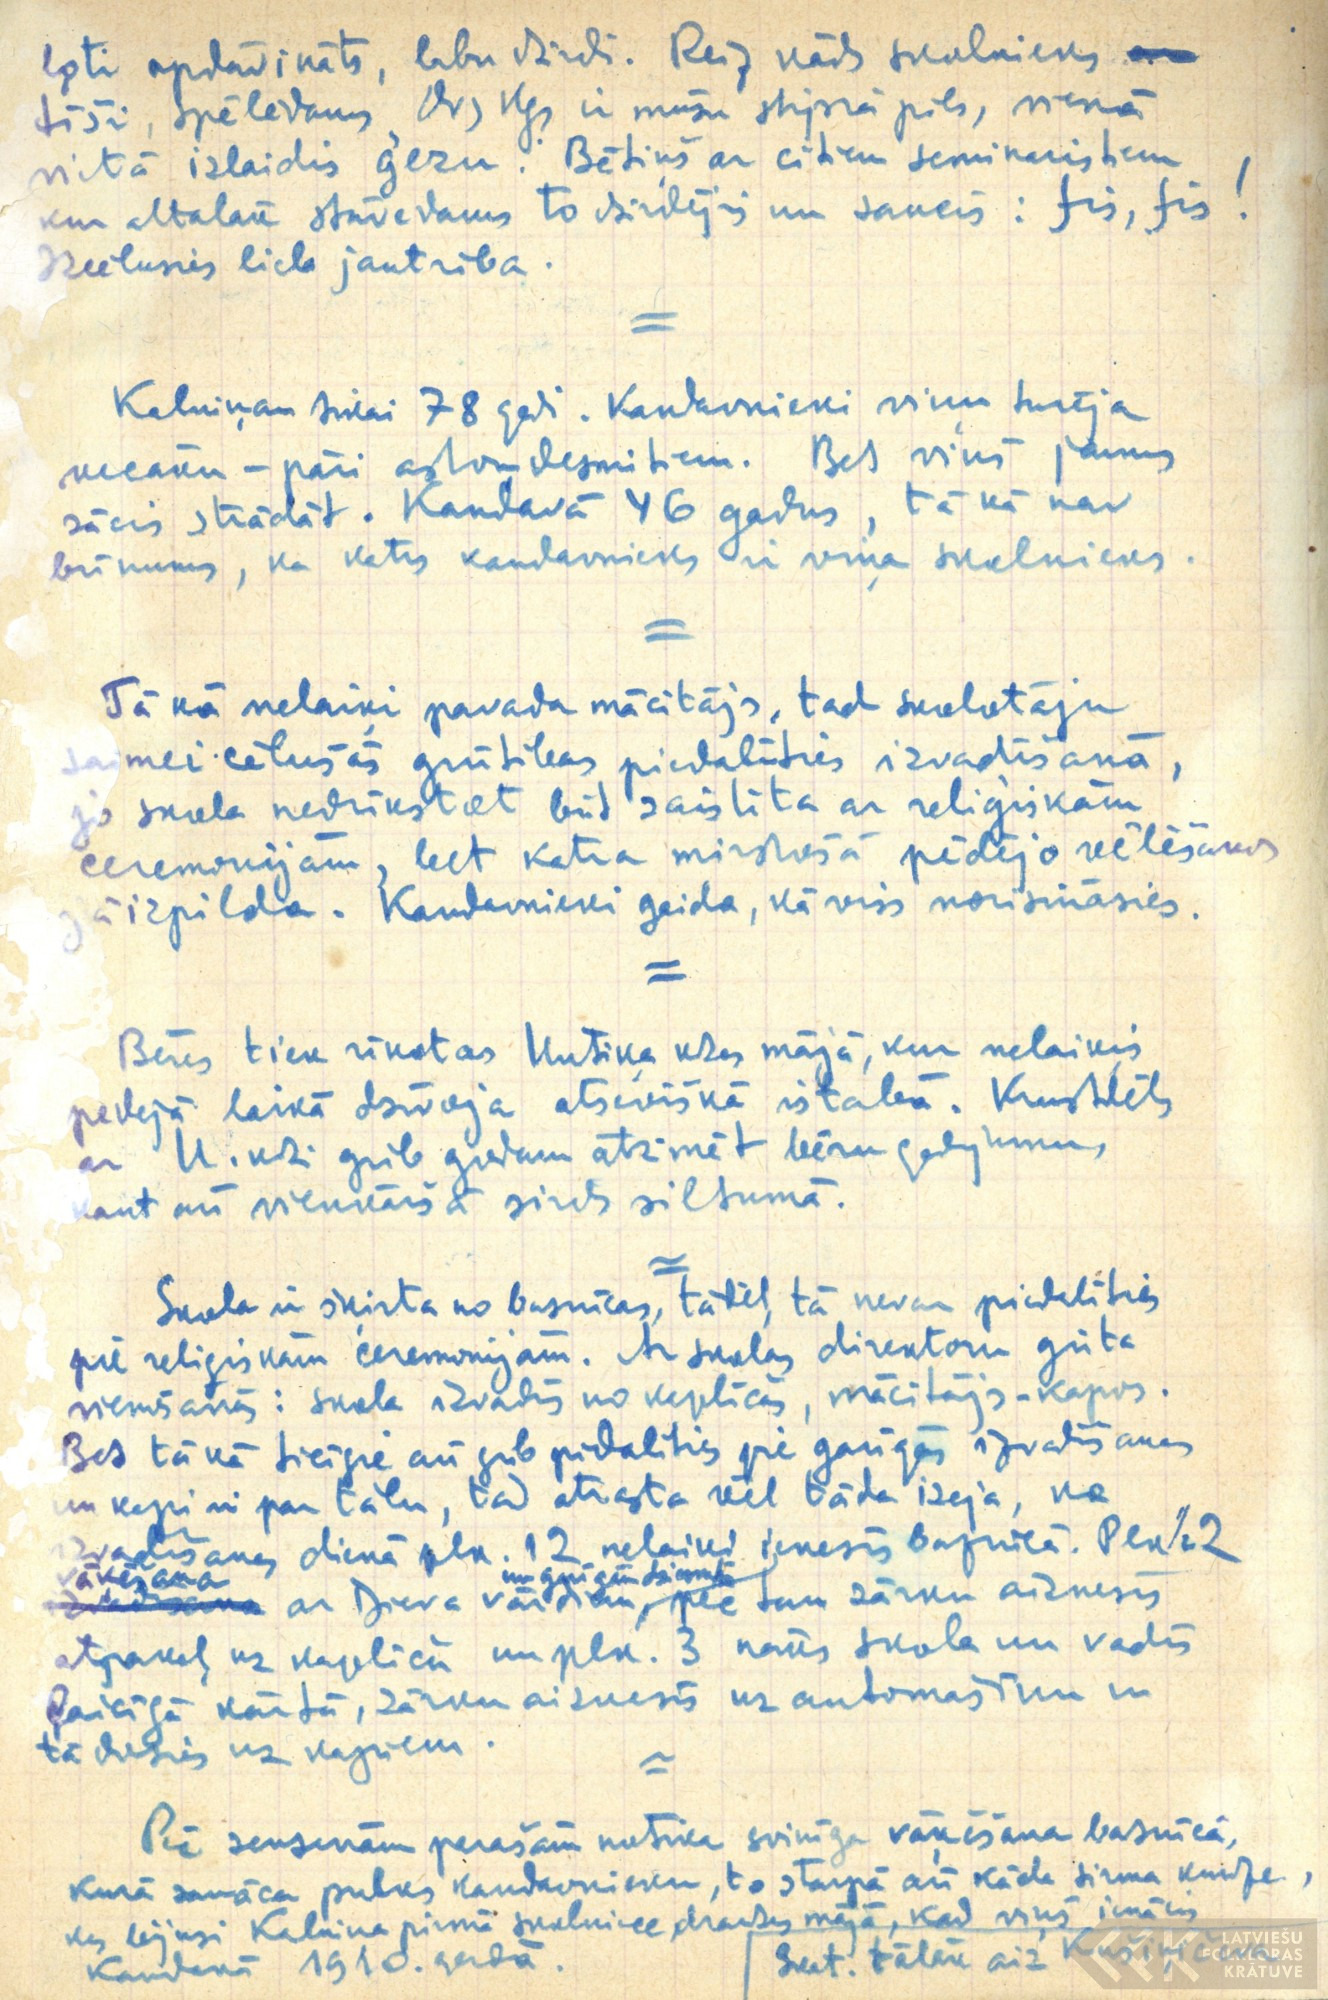 ļoti apdāvināts, labu dzirdi. Reiz kāds skolnieks
tīši, spēlēdams, Dvs Kgs ir mūsu stiprā pils, vienā
vietā izlaidis ģezu. Bētiņš ar citiem semināristiem
kur attālāk stāvēdams to dzirdējis un saucis: fis, fis!
Izcēlusies liela jautrība.
=
Kalniņam bikai 78 gadi. Kandavnieki viņu turēja
vecāku – pāri astoņdesmitiem. Bet viņš jauns
sācis strādāt. Kandavā 46 gadus, tā kā nav
brīnums, ka katrs kandavnieks ir viņa skolnieks.
=
Tā kā nelaiķi pavada mācītājs, tad skolotāju
saimei cēlušās grūtības piedalīties izvadīšanā,
jo skola nedrīkstot būt saistīta ar reliģiskām
ceremonijām, bet katra mirstošā pēdējo vēlēšanos
jāizpilda. Kandavnieki gaida, kā viss norisināsies.
=
Bēres tiek rīkotas Kutiķa kdzes mājā, kur nelaiķis
pēdējā laikā dzīvoja atsevišķā istabā. Krustdēls
ar K. kdzi grib godam atzīmēt bēru gadījumu,
kaut arī vienkāršā sirds siltumā.
=
Skola ir šķirta no baznīcas, tādēļ tā nevar piedalīties
pie reliģiskām ceremonijām. Ar skolas direktoru grūta
vienošanās: skola izvadīs no kapličas, mācītājs - kapos.
Bet tā kā ticīgie arī grib piedalīties pie garīgās izvadīšanas
un kapi ir par tālu, tad atrasta vēl tāda izeja, ka
izvadīšanas dienā plk. 12 nelaiķi ienesīs baznīcā. Plk ½2
vāķēšana ar Dieva vārdiem, un garīgām dziesmām pēc tam zārku aiznesīs
atpakaļ uz kapliču un plk. 3 nāks skola un vadīs
laicīgā kārtā, zārku aiznesīs uz automašīnu un
tā dosies uz kapiem.
=
Pēc sensenām parašām notika svinīga vāķēšana baznīcā,
kurā sanāca pulks kandavnieku, to starpā arī kāda sirma kundze,
kas bijusi Kalniņa pirmā skolniece draudzes mājā, kad viņš ienācis
Kandavā 1910. gadā. Skat. tālāk aiz
LATVIEŠU
FOLKLORAS
KRĀTUVE